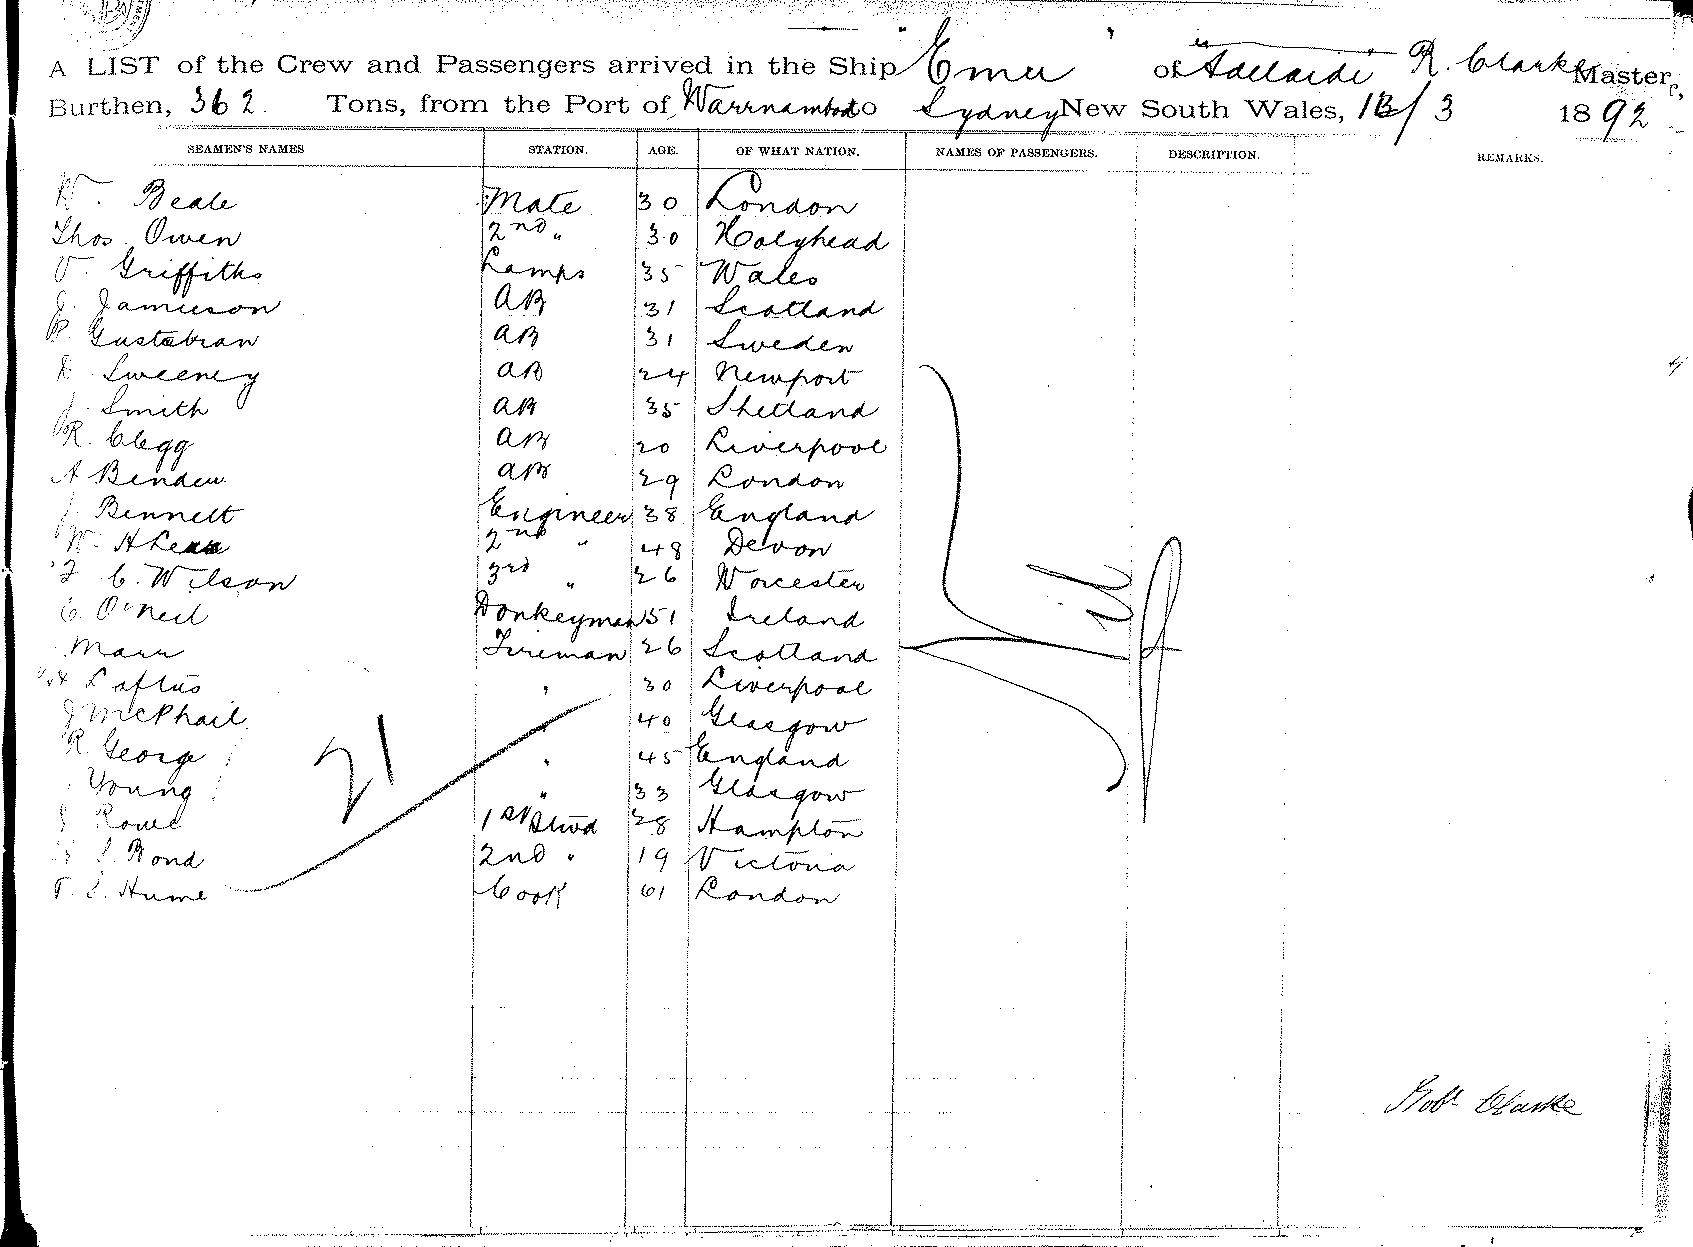 A LIST of the Crew and Passengers arrived in the Ship Emu of Adelaide R. Clarke Master,
Burthen, 362 Tons, from the Port of Warrnambool to Sydney New South Wales, 13/3 1892
SEAMEN'S NAMES STATION. AGE. OF WHAT NATION. NAMES OF PASSENGERS. DESCRIPTION. REMARKS.
W. Beale Mate 30 London
Thos. Owen 2nd " 30 Holyhead
V. Griffiths Lamps 35 Wales
J. Jamieson AB 31 Scotland
AB 31 Sweden
Sweeney AB 24 Newport
J. Smith AB 35 Shetland
R. Clegg AB 20 Liverpool
A AB 29 London
J. Bennett Engineer 38 England
W. 2nd " 48 Devon
C. Wilson 3rd " 26 Worcester
C. O'Neil Donkeyman 51 Ireland
Marr Fireman 26 Scotland
Loftus " 30 Liverpool
J McPhail " 40 Glasgow
R George " 45 England
Young " 33 Glasgow
J Rowe 1st Stwd 28 Hampton
Bond 2nd " 19 Victoria
Hume Cook 61 London
21
Nil
Robt Clarke